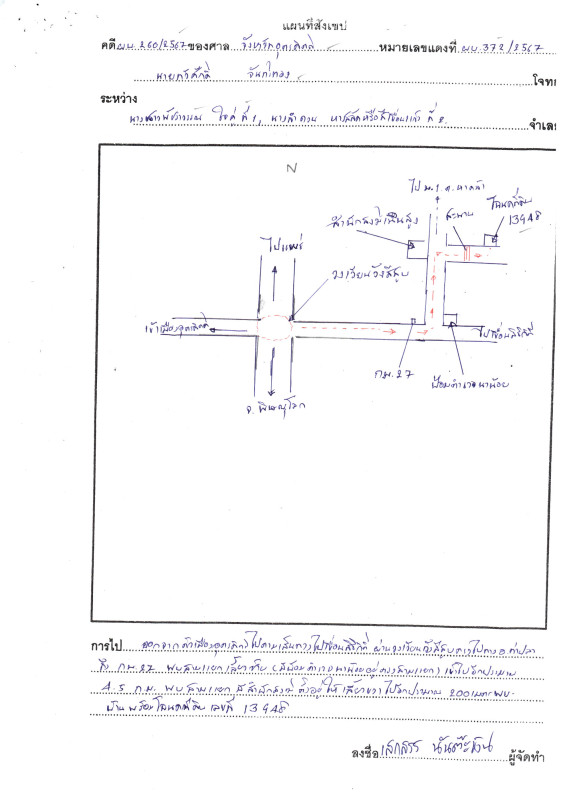 แผนที่สังเขป
คดี ผบ. 260/2567 ของศาล จังหวัดอุตรดิตถ์ หมายเลขแดงที่ ผบ. 372/2567
นาย โจท
ระหว่าง
นางสาว ที่ 1, นางลำดวน ที่ 2. จำเล
N
ไป
โฉนดที่ดิน
สะพาน
13948
สำนักสงฆ์เนินสูง
ไปแพร่
วงเวียนวังสีสูบ
เข้าเมืองอุตรดิตถ์
ไปเขื่อนสิริกิติ์
กม. 27
ป้อมตำรวจนาน้อย
จ. พิษณุโลก
การไป ออกจากตัวเมืองอุตรดิตถ์ไปตามเส้นทางไปเขื่อนสิริกิติ์ ผ่านวงเวียนวังสีสูบตรงไปทาง อ.ท่าปลา
ถึง กม. 27 พบสามแยก เลี้ยวซ้าย (มีป้อมตำรวจนาน้อยอยู่ตรงสามแยก) เข้าไปอีกประมาณ
4.5 กม. พบสามแยก มีสำนักสงฆ์ ตั้งอยู่ให้ เลี้ยวขวา ไปอีกประมาณ 200 เมตร พบ
บ้านพร้อมโฉนดที่ดิน เลขที่ 13948
ลงชื่อ ผู้จัดทำ